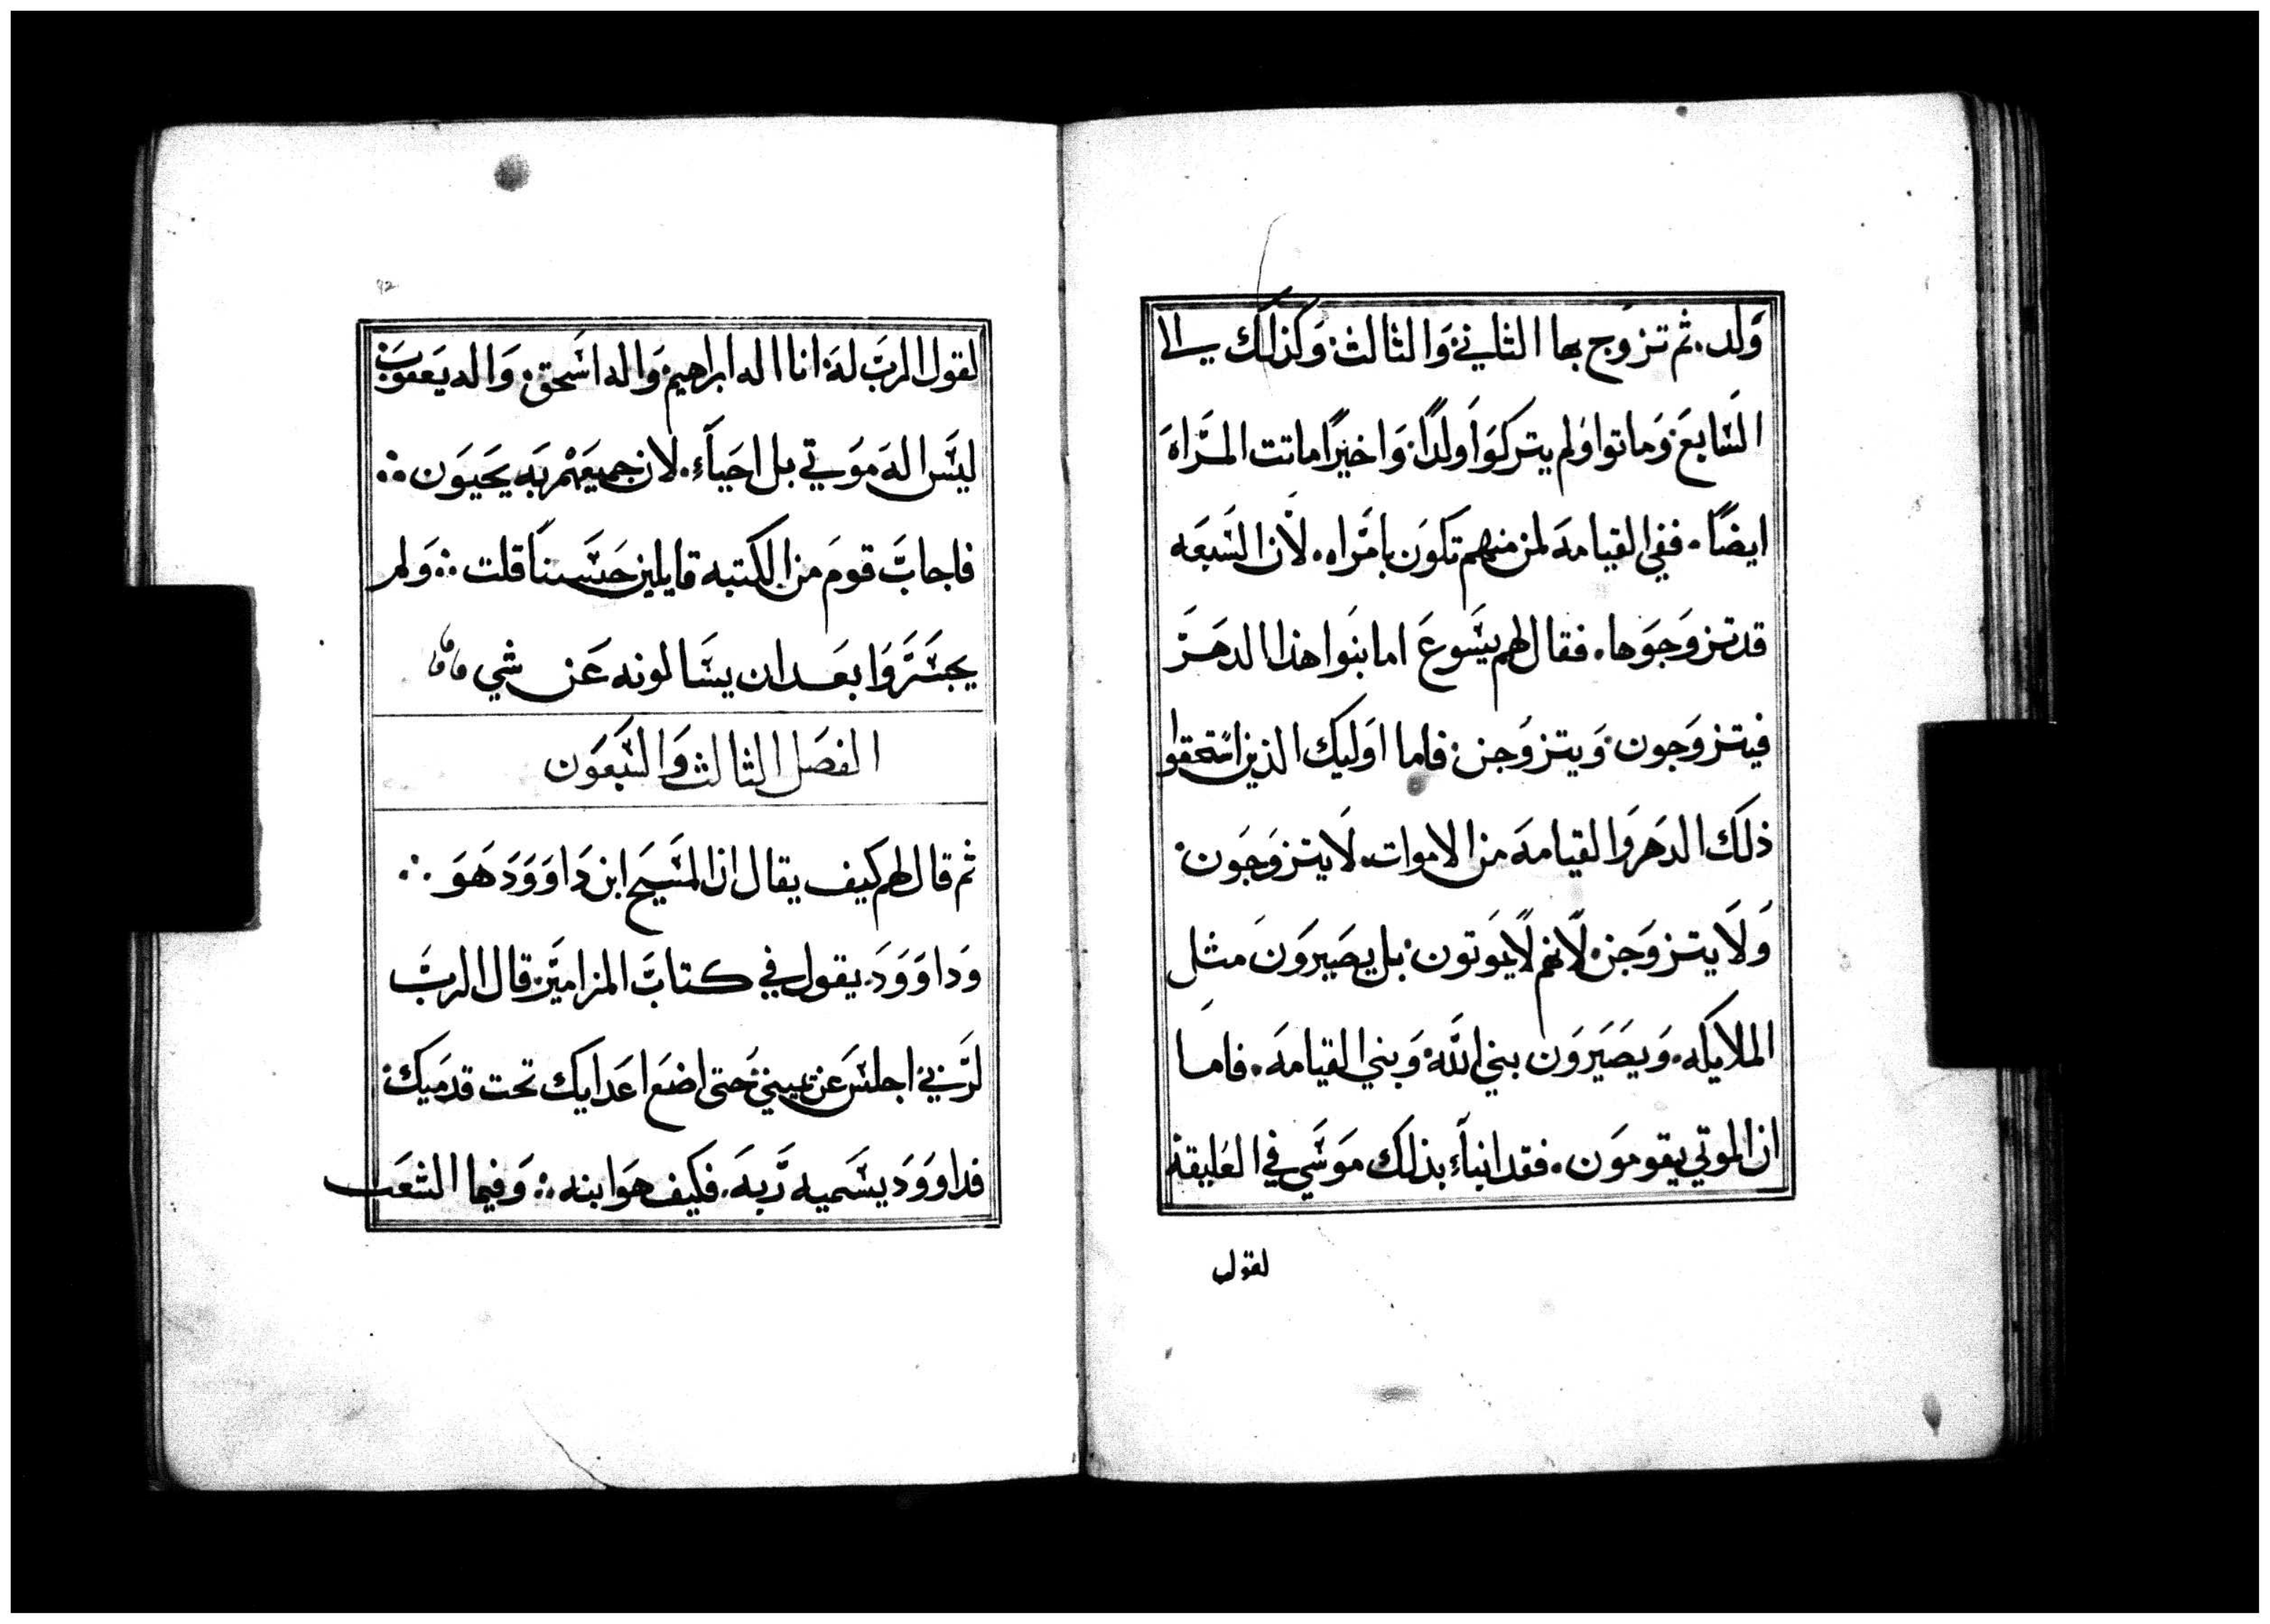 وَلد. ثم تزوج بها الثاني: وَالثالث: وَكذلك الي
السَابع: وَماتوا ولم يتركوَا ولدًا: وَاخيرًا ماتت المرَاه
ايضًا. ففي القيامه لمن منهم تكوَن بامرَاه. لان السَبعَه
قد تزوجَوها. فقال لهم يسَوع اما بنوا هذا الدهر
فيتزوَجون: وَيتزوجن: فاما اوَليك الذين استحقوا
ذلك الدهر وَالقيامه من الاموات. لَا يتزوجَون:
وَلَا يتزوَجن: لانهم لا يموَتون: بل يصَيروَن مثل
الملايكه. وَيصَيروَن بني الله: وَبني القيامه. فاما
ان الموتي يقوموَن. فقد انباء بذلك موَسي في العليقة
لقول
92
لقول الربَ له: انا اله ابراهيم: وَاله اسَحق: وَاله يعقوبَ:
ليسَ اله موَتي بل احيَآء. لان جميعَهم به يحيوَن ⁘
فاجابَ قومَ من الكتبه قايلين حسَنًا قلت ⁘ وَلم
يجسَروَا بعَد ان يسَالونه عَن شي
الفصَل الثالث وَالسَبعَون
ثم قال لهم كيف يقال ان المسَيح ابن دَاوَوَد هوَ ⁘
وَداوَوَد. يقول في كتابَ المزاميرَ: قال الربَ
لرَبي: اجلسَ عن يميني: حَتي اضعَ اعَدايك تحت قدميَك:
فداووَد يسَميه رَبه. فكيف هوَ ابنه ⁘ وَفيما الشعَب